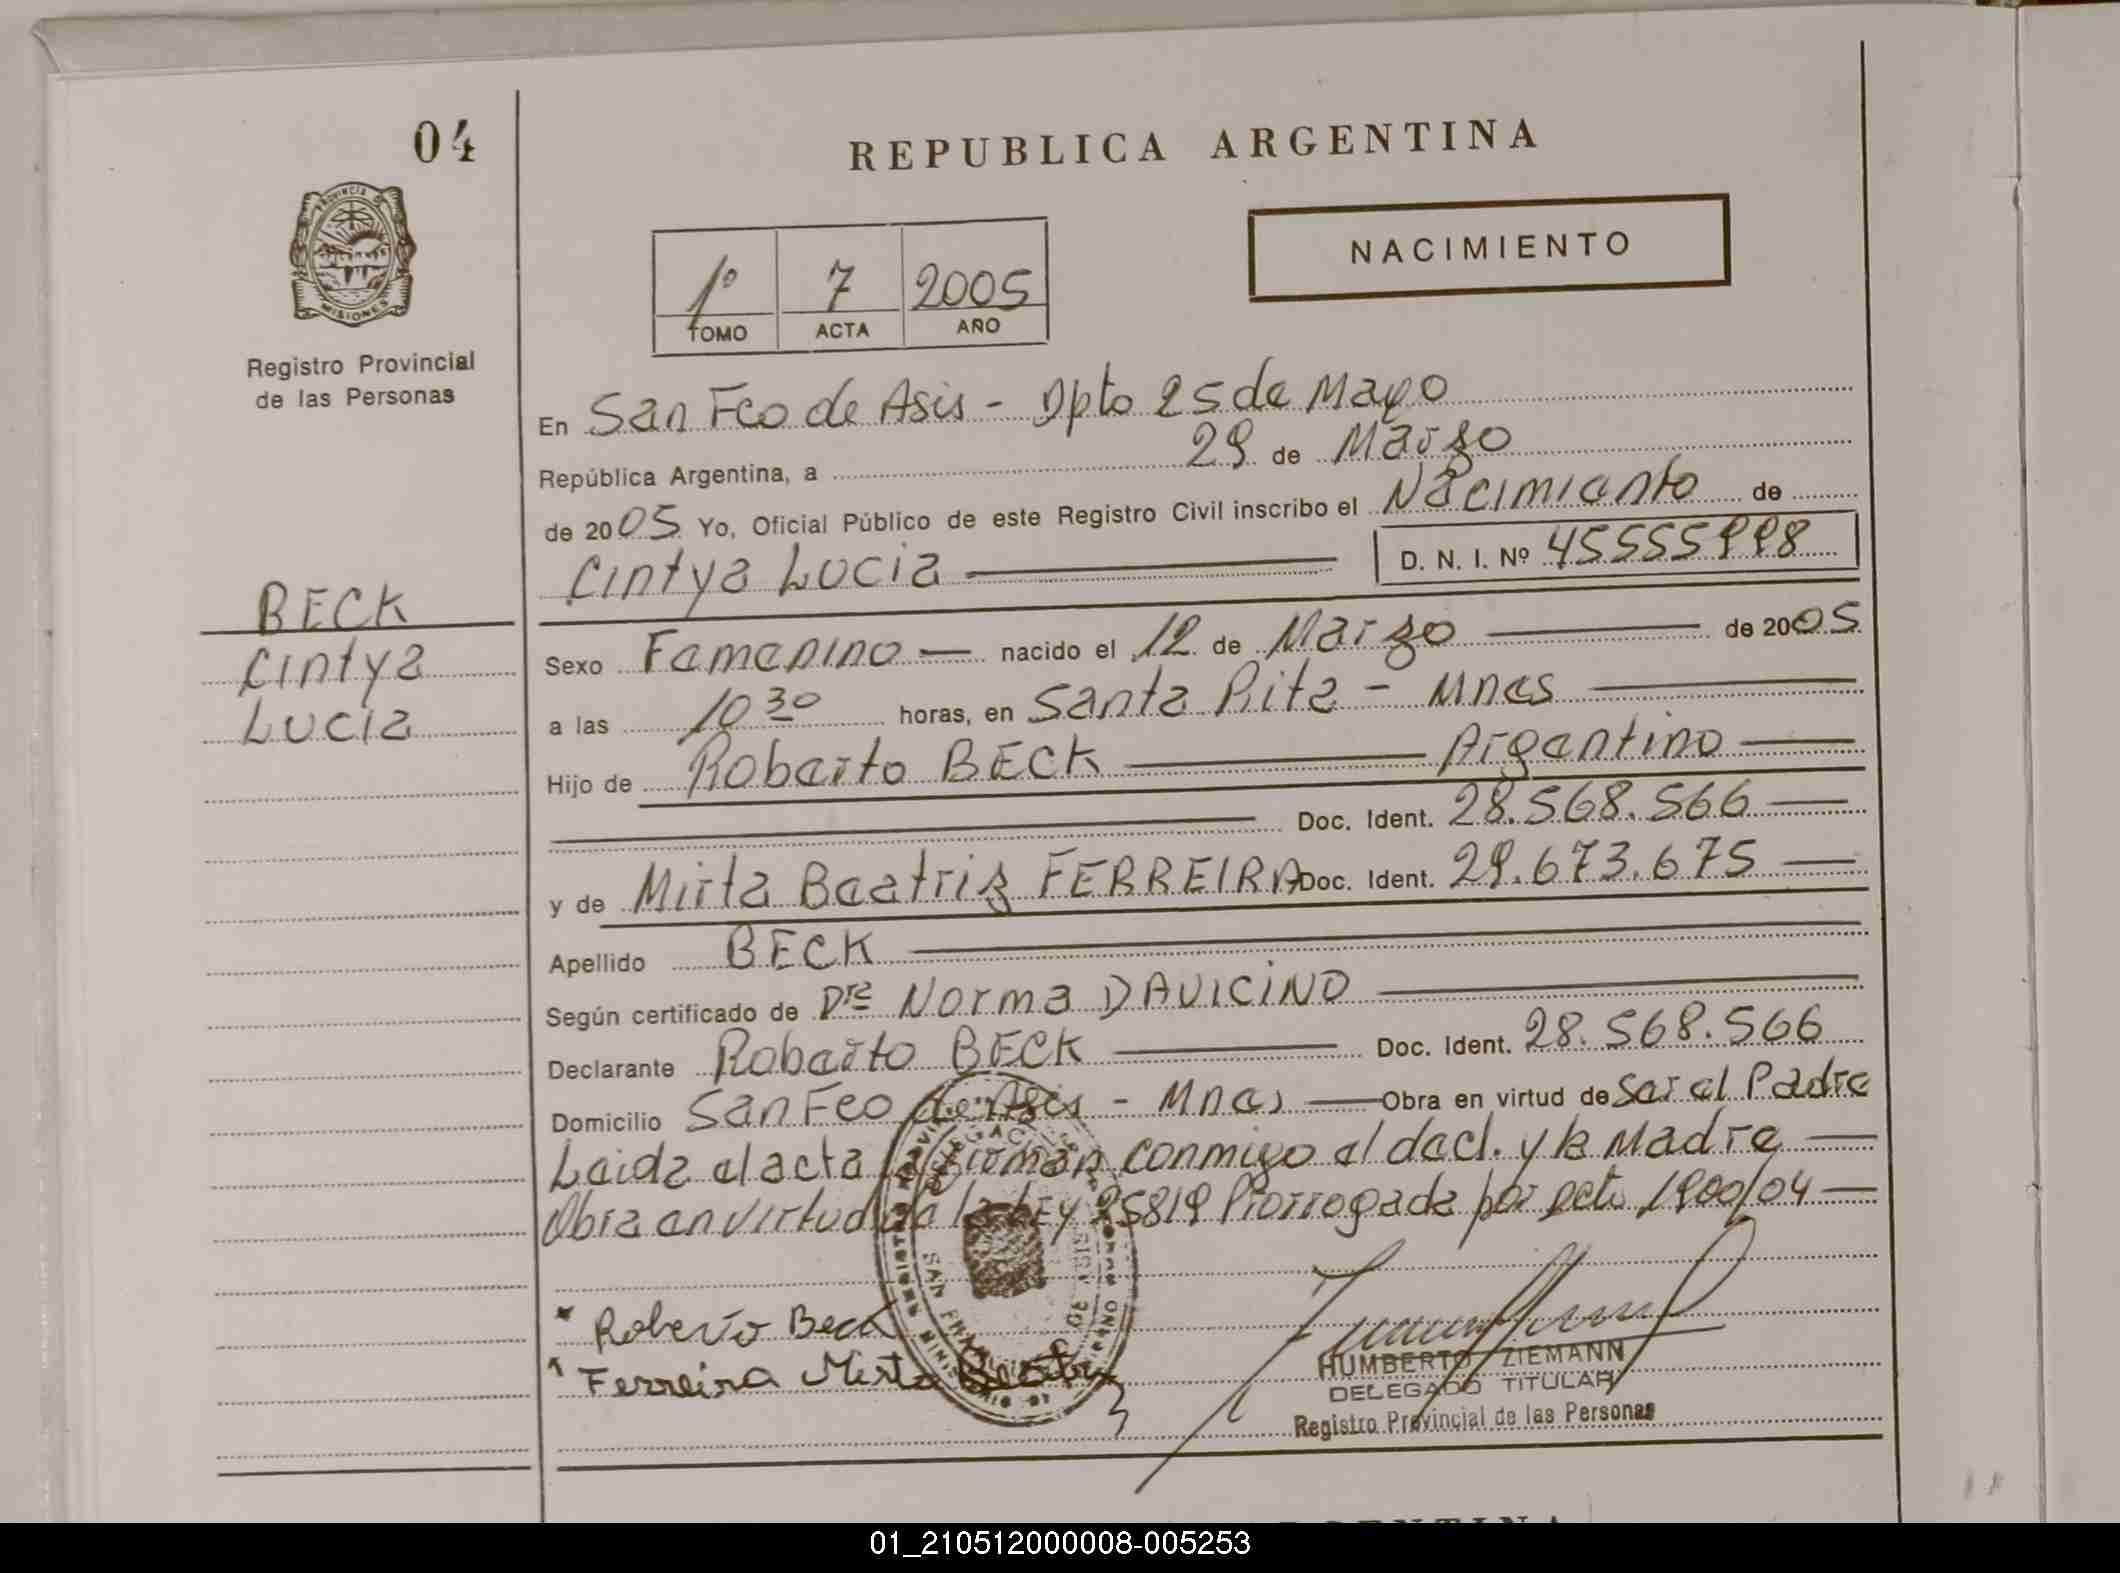 04
REPUBLICA ARGENTINA
PROVINCIA DE
MISIONES
Registro Provincial
de las Personas
NACIMIENTO
1º 7 2005
TOMO ACTA AÑO
En San Fco de Asis - Dpto 25 de Mayo
República Argentina, a 29 de Marzo
de 2005 Yo, Oficial Público de este Registro Civil inscribo el Nacimiento de
Cintya Lucia D. N. I. Nº 45555998
BECK
Cintya
Lucia
Sexo Femenino nacido el 12 de Marzo de 2005
a las 10 30 horas, en Santa Rita - Mnes
Hijo de Roberto BECK Argentino
Doc. Ident. 28.568.566
y de Mirta Beatriz FERREIRA Doc. Ident. 29.673.675
Apellido BECK
Según certificado de Dra Norma DAVICINO
Declarante Roberto BECK Doc. Ident. 28.568.566
Domicilio San Fco de Asis - Mnes Obra en virtud de Ser el Padre
Leida el acta la firman conmigo el decl. y la Madre
Obra en virtud de la LEY 25819 Prorrogada por Dcto 1900/04
Roberto Beck
Ferreira Mirta Beatriz
HUMBERTO ZIEMANN
DELEGADO TITULAR
Registro Provincial de las Personas
01_210512000008-005253